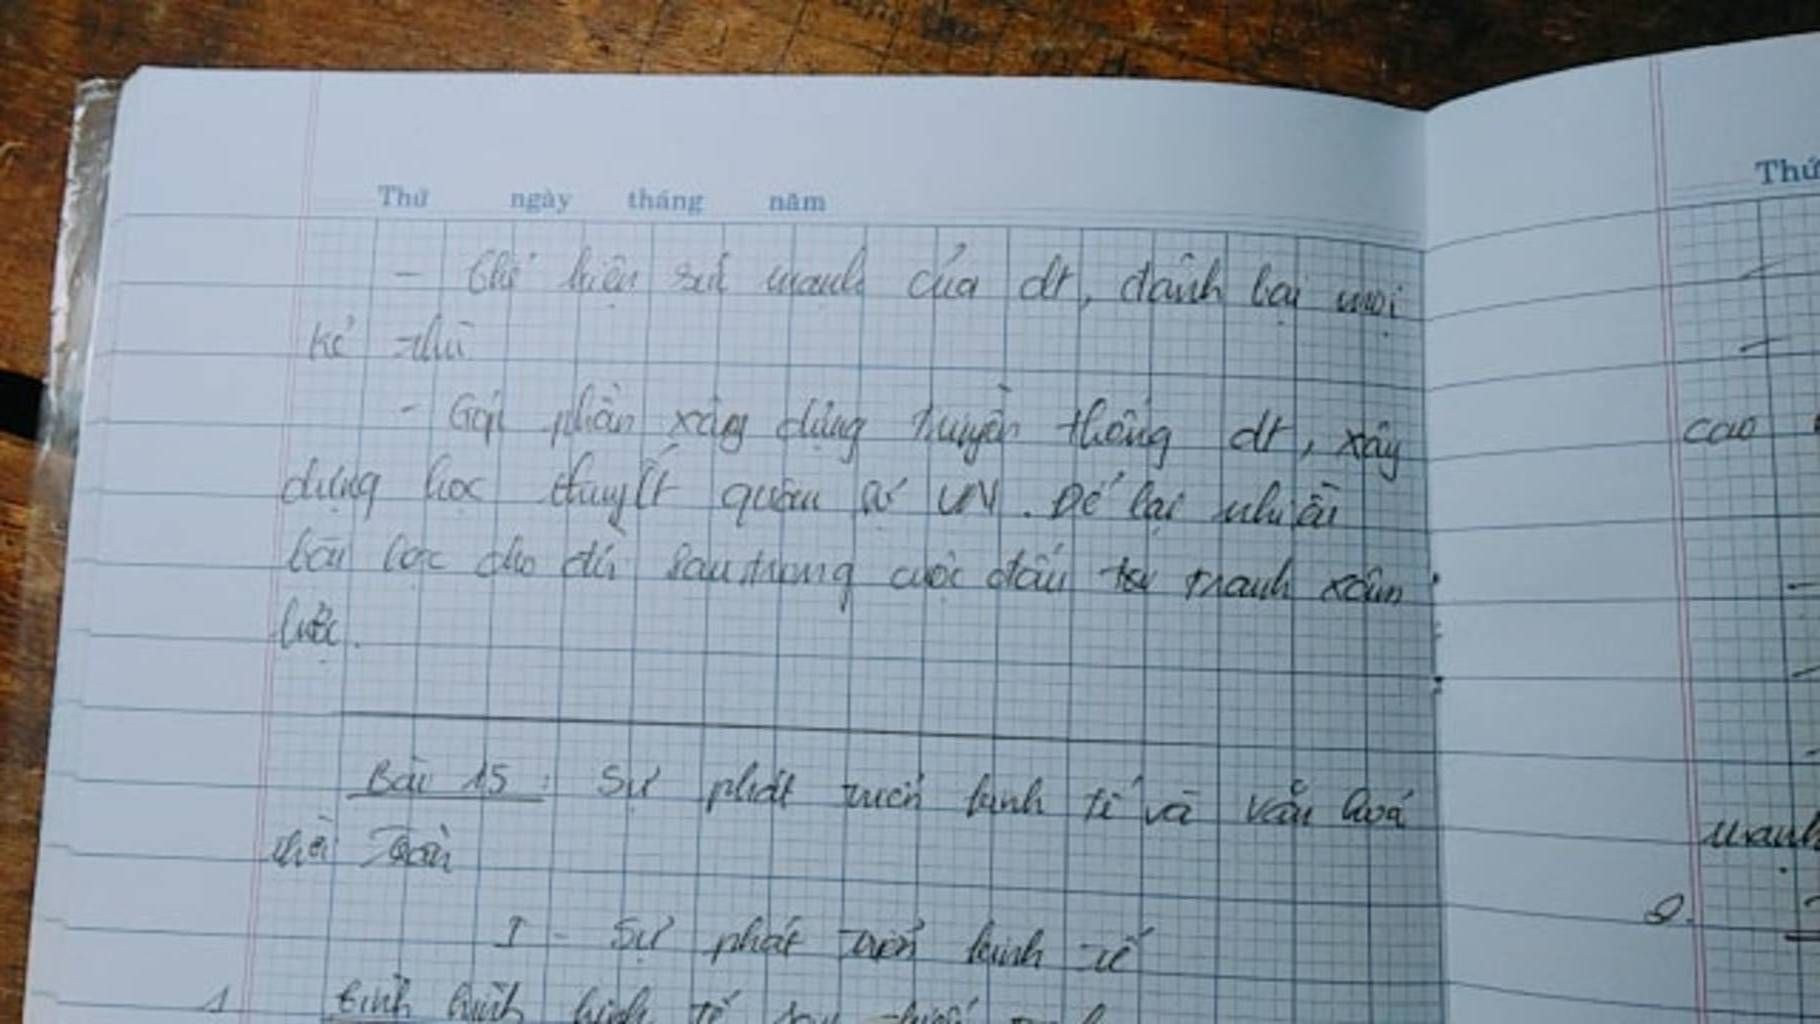 Thứ ngày tháng năm
- Thể hiện sức mạnh của dt, đánh bại mọi
kẻ thù
- Góp phần xây dựng truyền thống dt, xây
dựng học thuyết quân sự VN. Để lại nhiều
bài học cho đời sau trong cuộc đấu tranh xâm
lược.
Bài 15: Sự phát triển kinh tế và văn hoá
thời Trần
I - Sự phát triển kinh tế
1 tình hình kinh tế sau chiến tranh
Thứ
cao
mạnh
2.